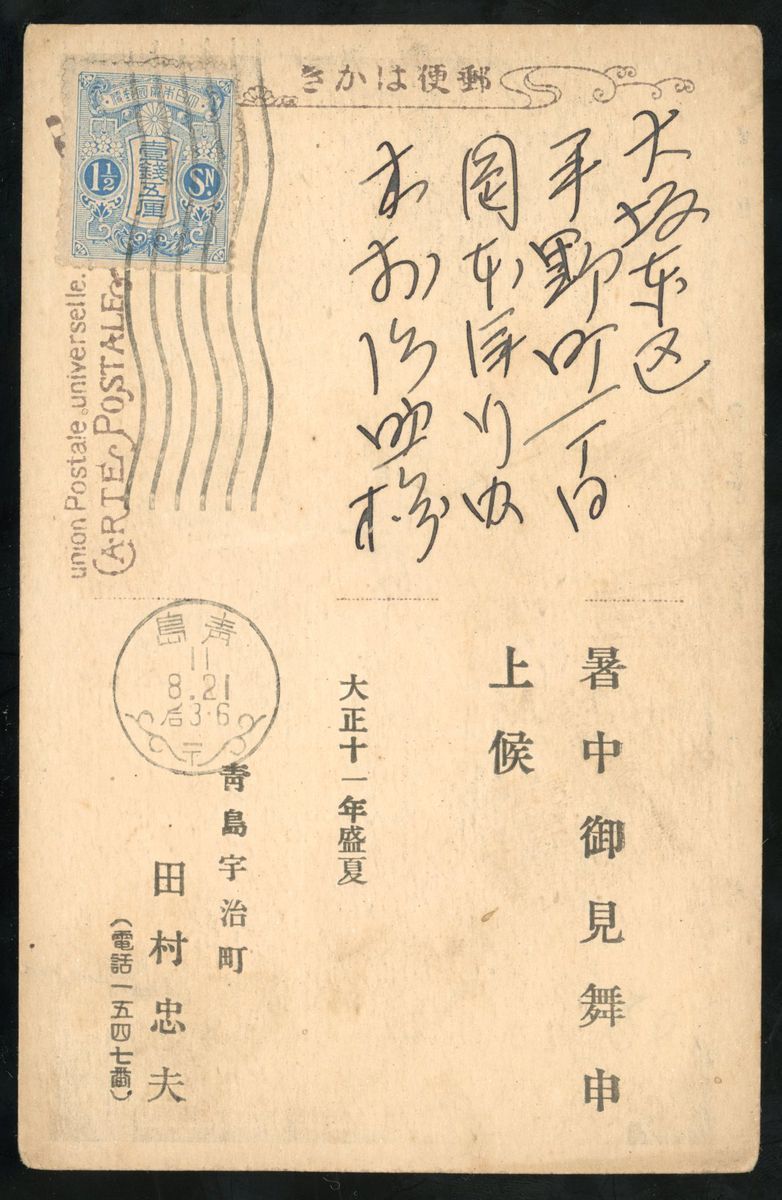 郵便はかき
大日本帝國郵便
壹錢五厘
1½ SN.
union Postale universelle.
CARTE POSTALE
大坂東区
平野町一丁目
岡本洋行内
木村治助様
青島
11
8.21
后3-6
暑中御見舞申
上候
大正十一年盛夏
青島宇治町
田村忠夫
(電話一五四七番)